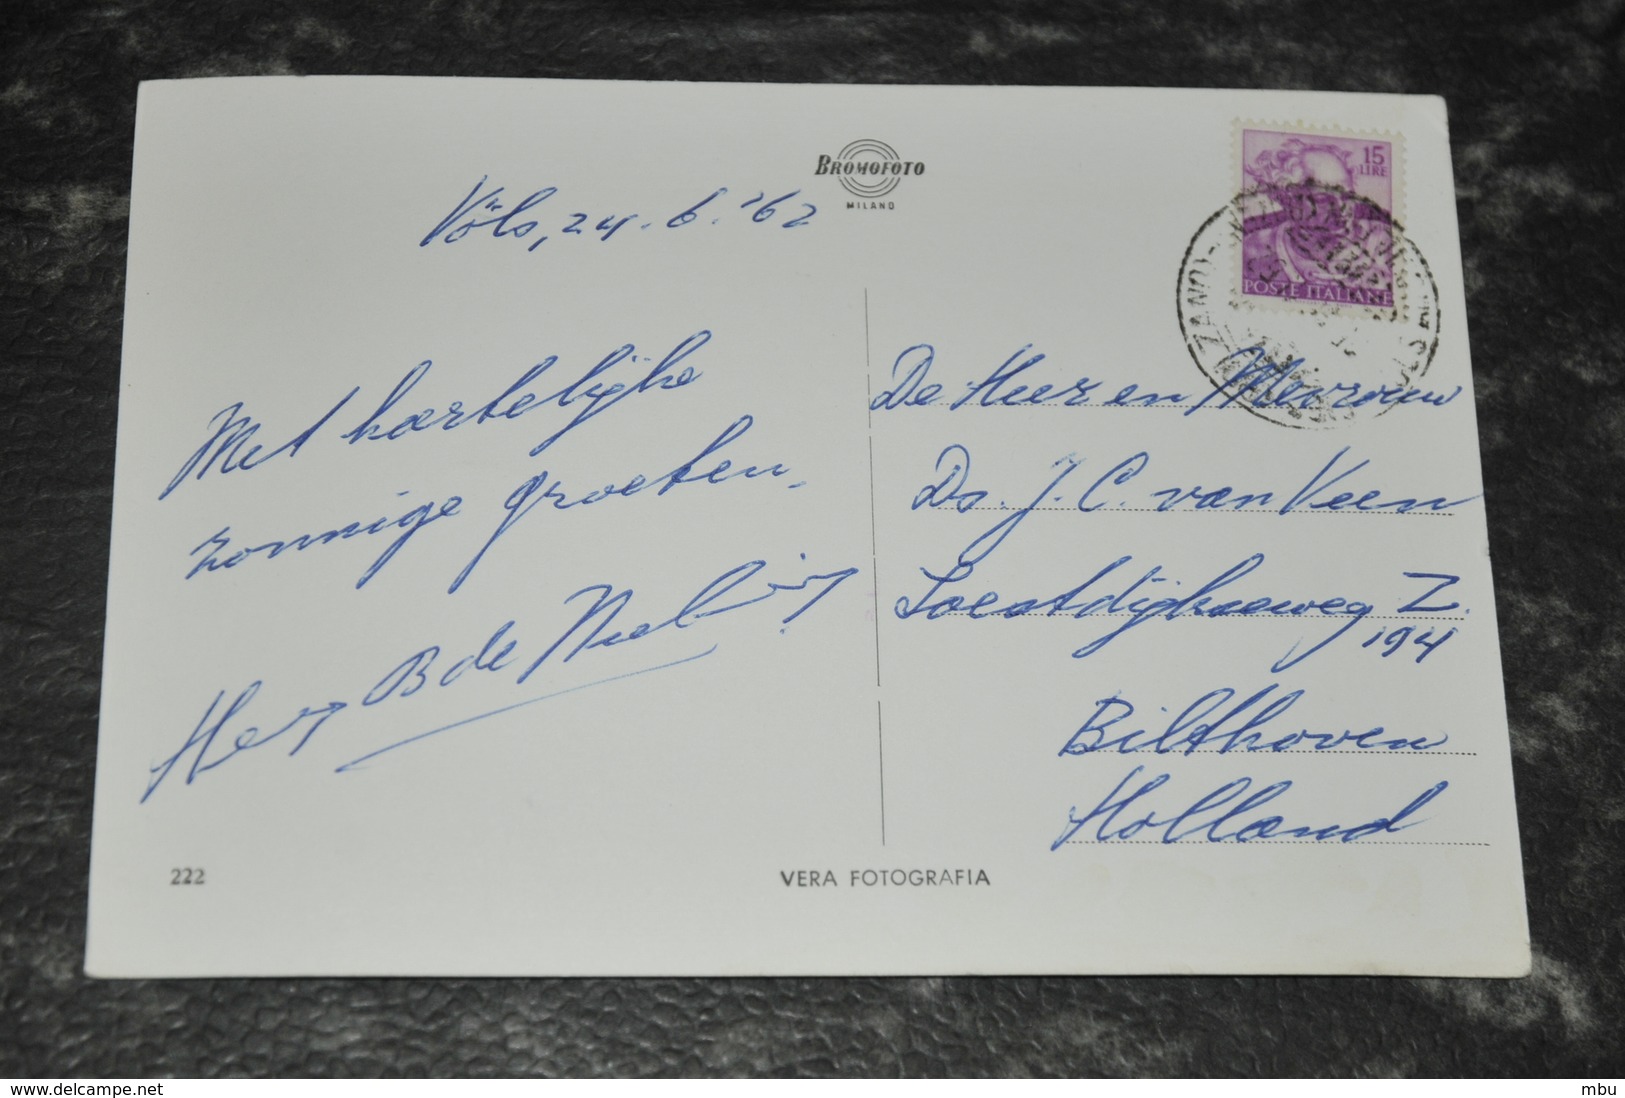 BROMOFOTO
MILANO
15
LIRE
POSTE ITALIANE
Völs, 24.6.'62
Met hartelijke
zonnige groeten,
B de
De Heer en Mevrouw
Ds. J. C. van Veen
Soestdijkseweg Z.
194
Bilthoven
Holland
222
VERA FOTOGRAFIA
www.delcampe.net
mbu